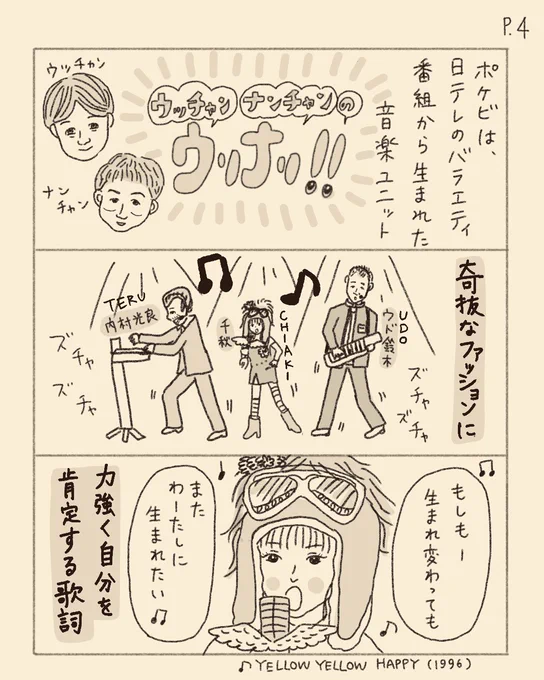 P.4
ポケビは、
日テレのバラエティ
番組から生まれた
音楽ユニット
ウッチャン
ナン
チャン
ウッチャンナンチャンの
ウリナリ!!
奇抜なファッションに
UDO
ウド鈴木
CHIAKI
千秋
TERU
内村光良
ズチャ
ズチャ
ズチャ
ズチャ
もしもー
生まれ変わっても
また
わーたしに
生まれたい
力強く自分を
肯定する歌詞
YELLOW YELLOW HAPPY (1996)